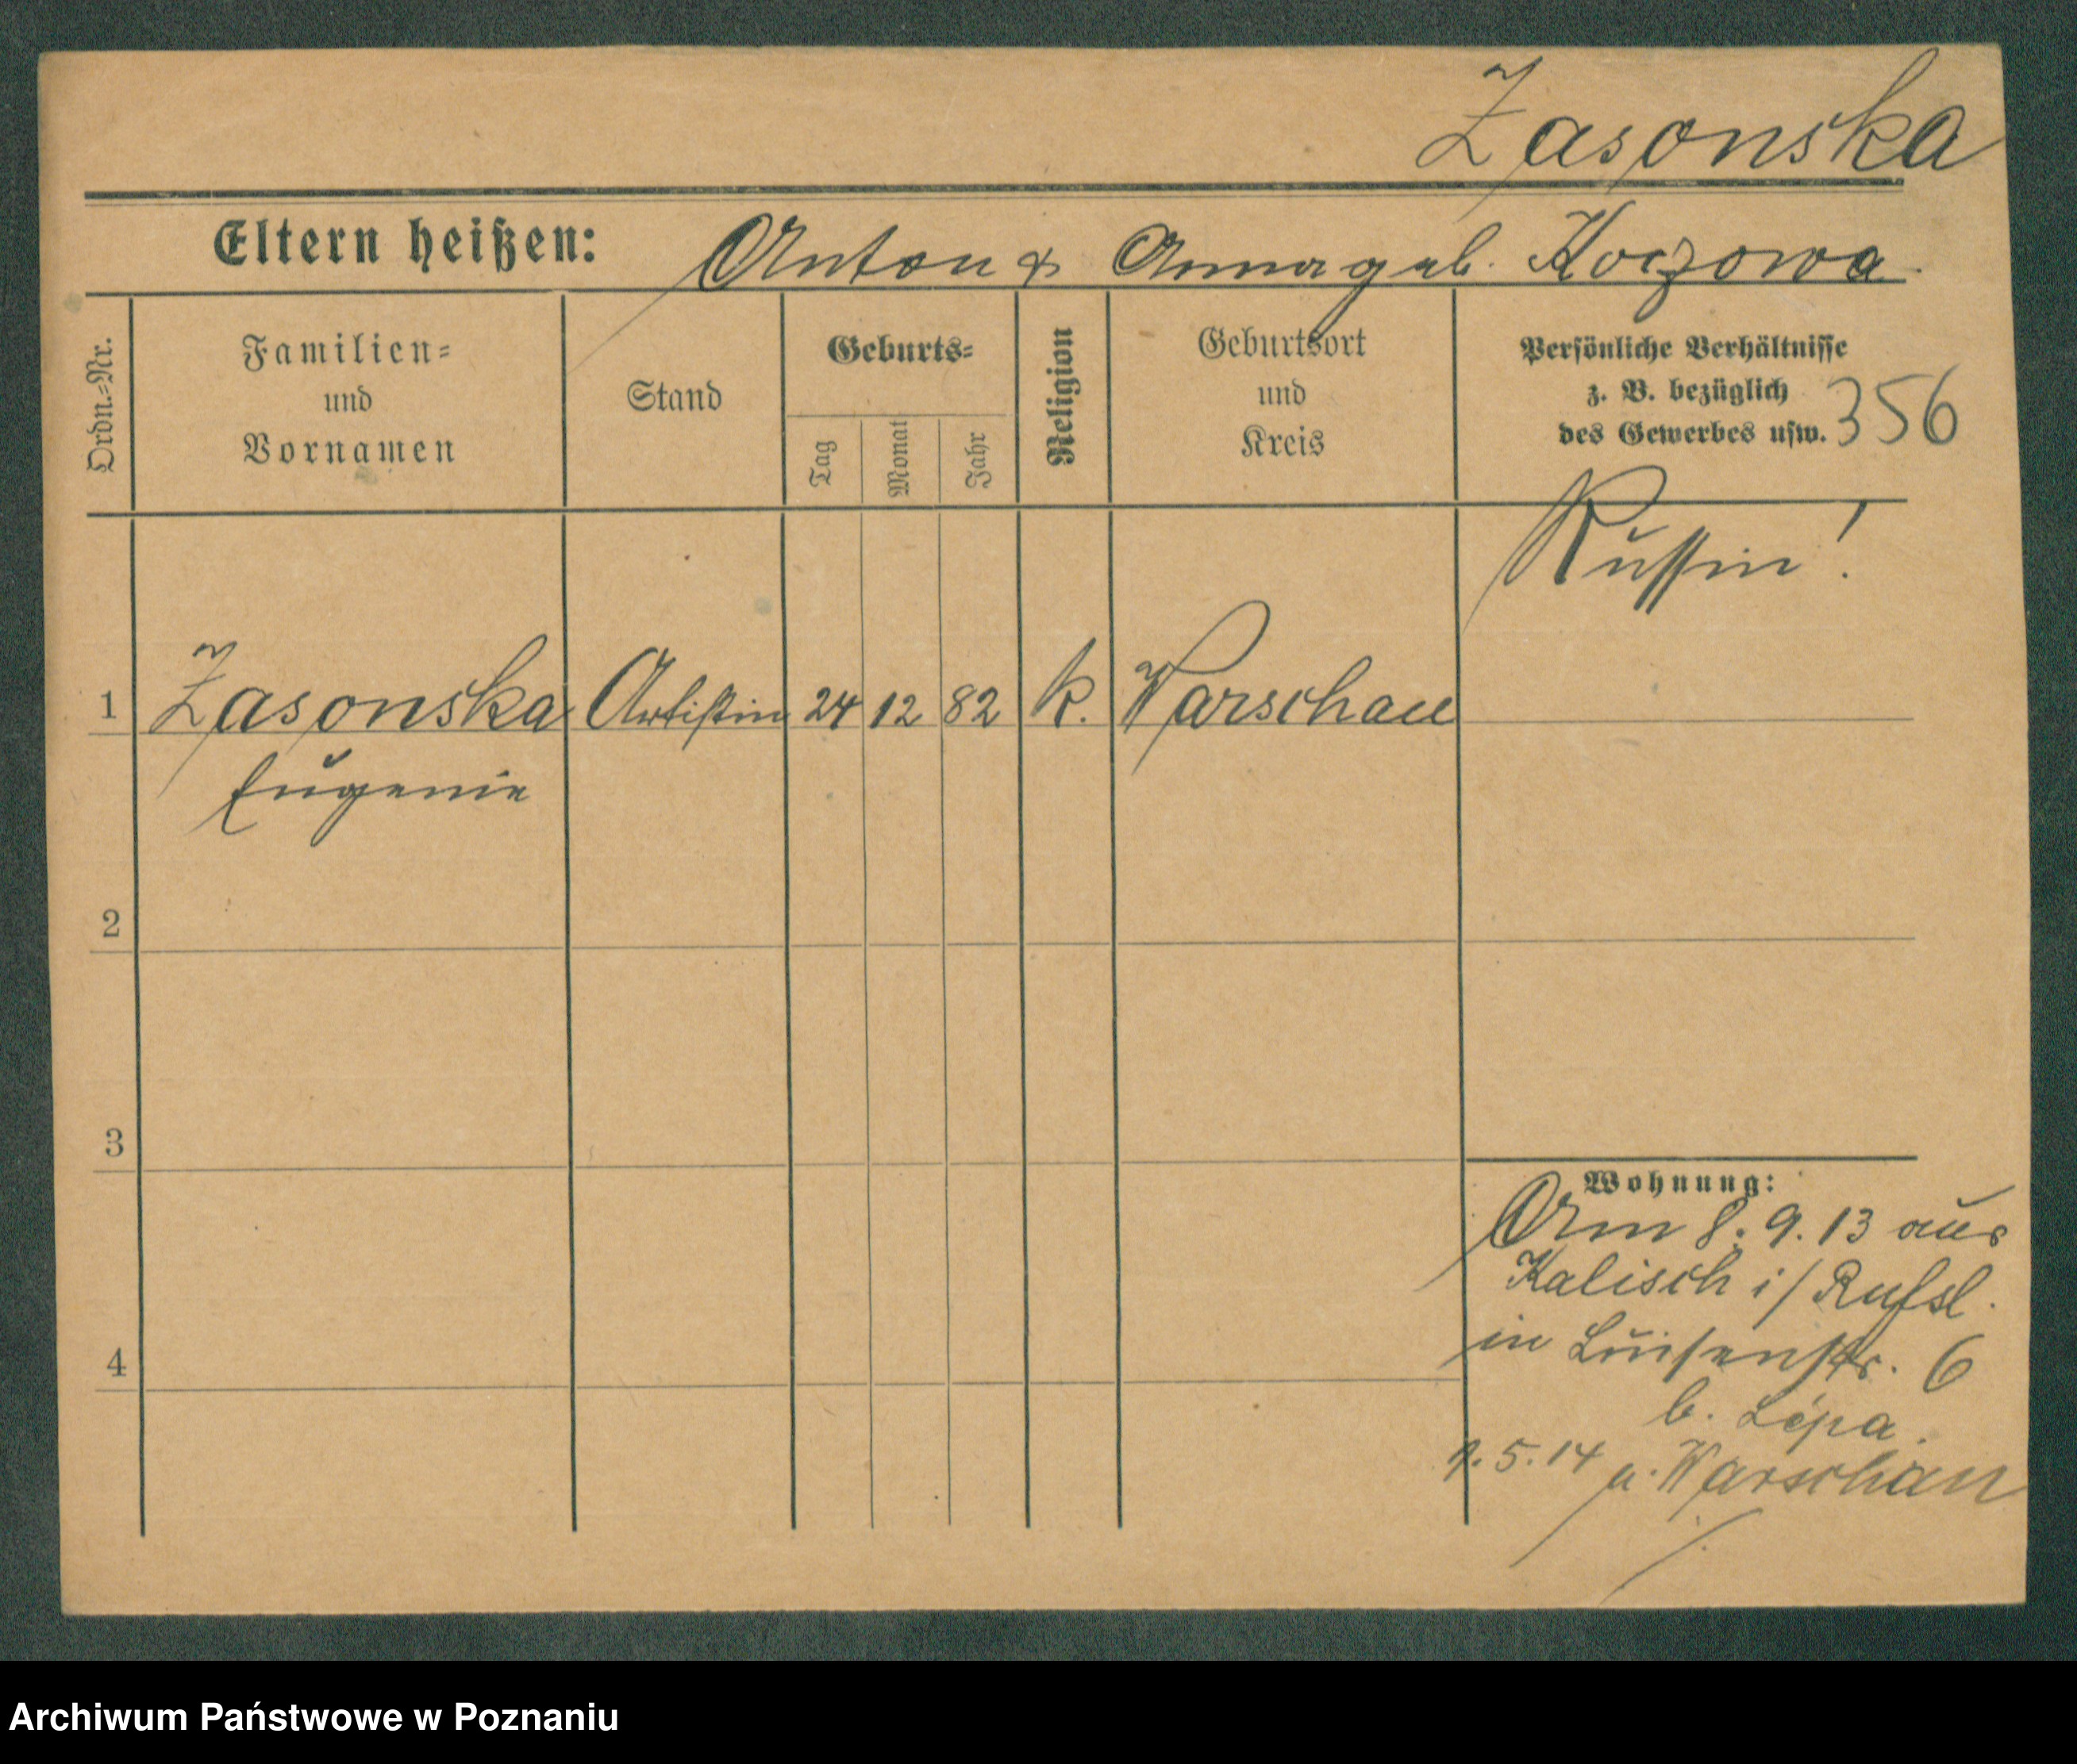 Zasonska
Eltern heißen: Anton & Anna geb. Koczowa.
Ordn.=Nr.
Familien=
und
Vornamen
Stand
Geburts=
Tag
Monat
Jahr
Religion
Geburtsort
und
Kreis
Persönliche Verhältnisse
z. B. bezüglich
des Gewerbes usw.
356
Russin!
1 Zasonska Artistin 24 12 82 k. Warschau
Eugenie
2
3
4
Wohnung:
Am 8. 9. 13 aus
Kalisch i/Rußl.
in Luisenstr. 6
b. Lépa.
5. 14 a. Warschau
Archiwum Państwowe w Poznaniu